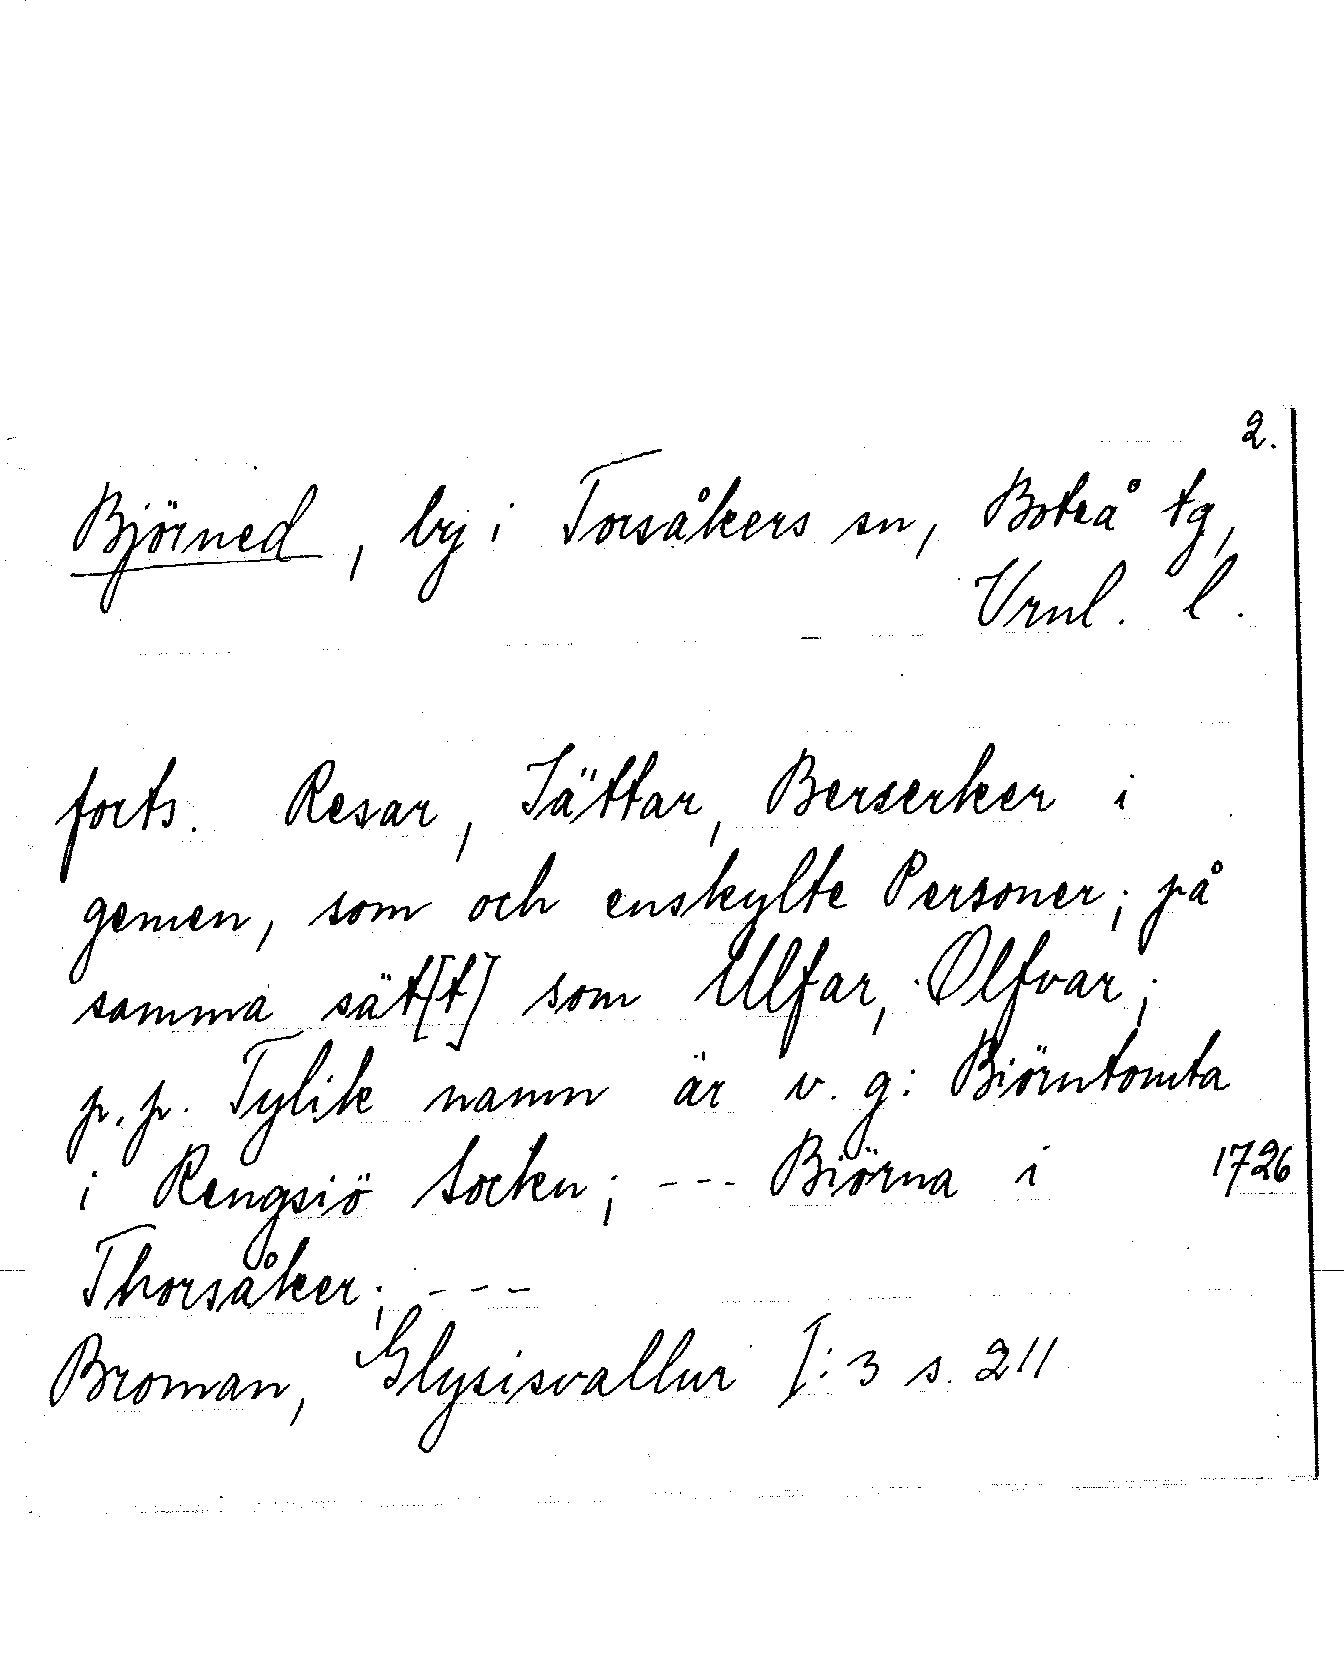 2.
Björned, by i Torsåkers sn, Boteå tg,
Vrnl. l.
forts. Resar, Jättar, Berserker i
gemen, som och enskylte Personer; på
samma sät[t] som Ulfar, Olfvar;
p.p. Tylik namn är v. g: Biörntomta
i Rengsiö Socken; --- Biörna i 1726
Thorsåker; ---
Broman, Glysisvallur I: 3 s. 211